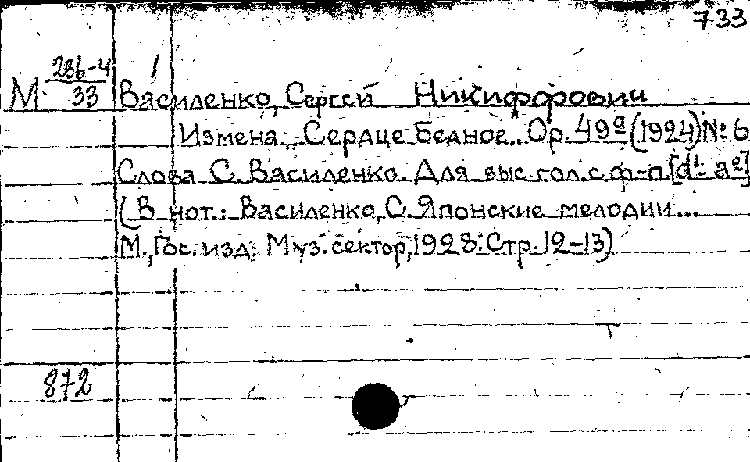 733
М 286-4/33 Василенко, Сергей Никифорович
Измена. Сердце бедное.. Op. 49ª (1924) № 6
Слова С. Василенко. Для выс. гол. с ф-п. [d¹- a²]
(В нот.: Василенко, С. Японские мелодии...
М., Гос. изд. Муз. сектор, 1928. Стр. 12-13)
872